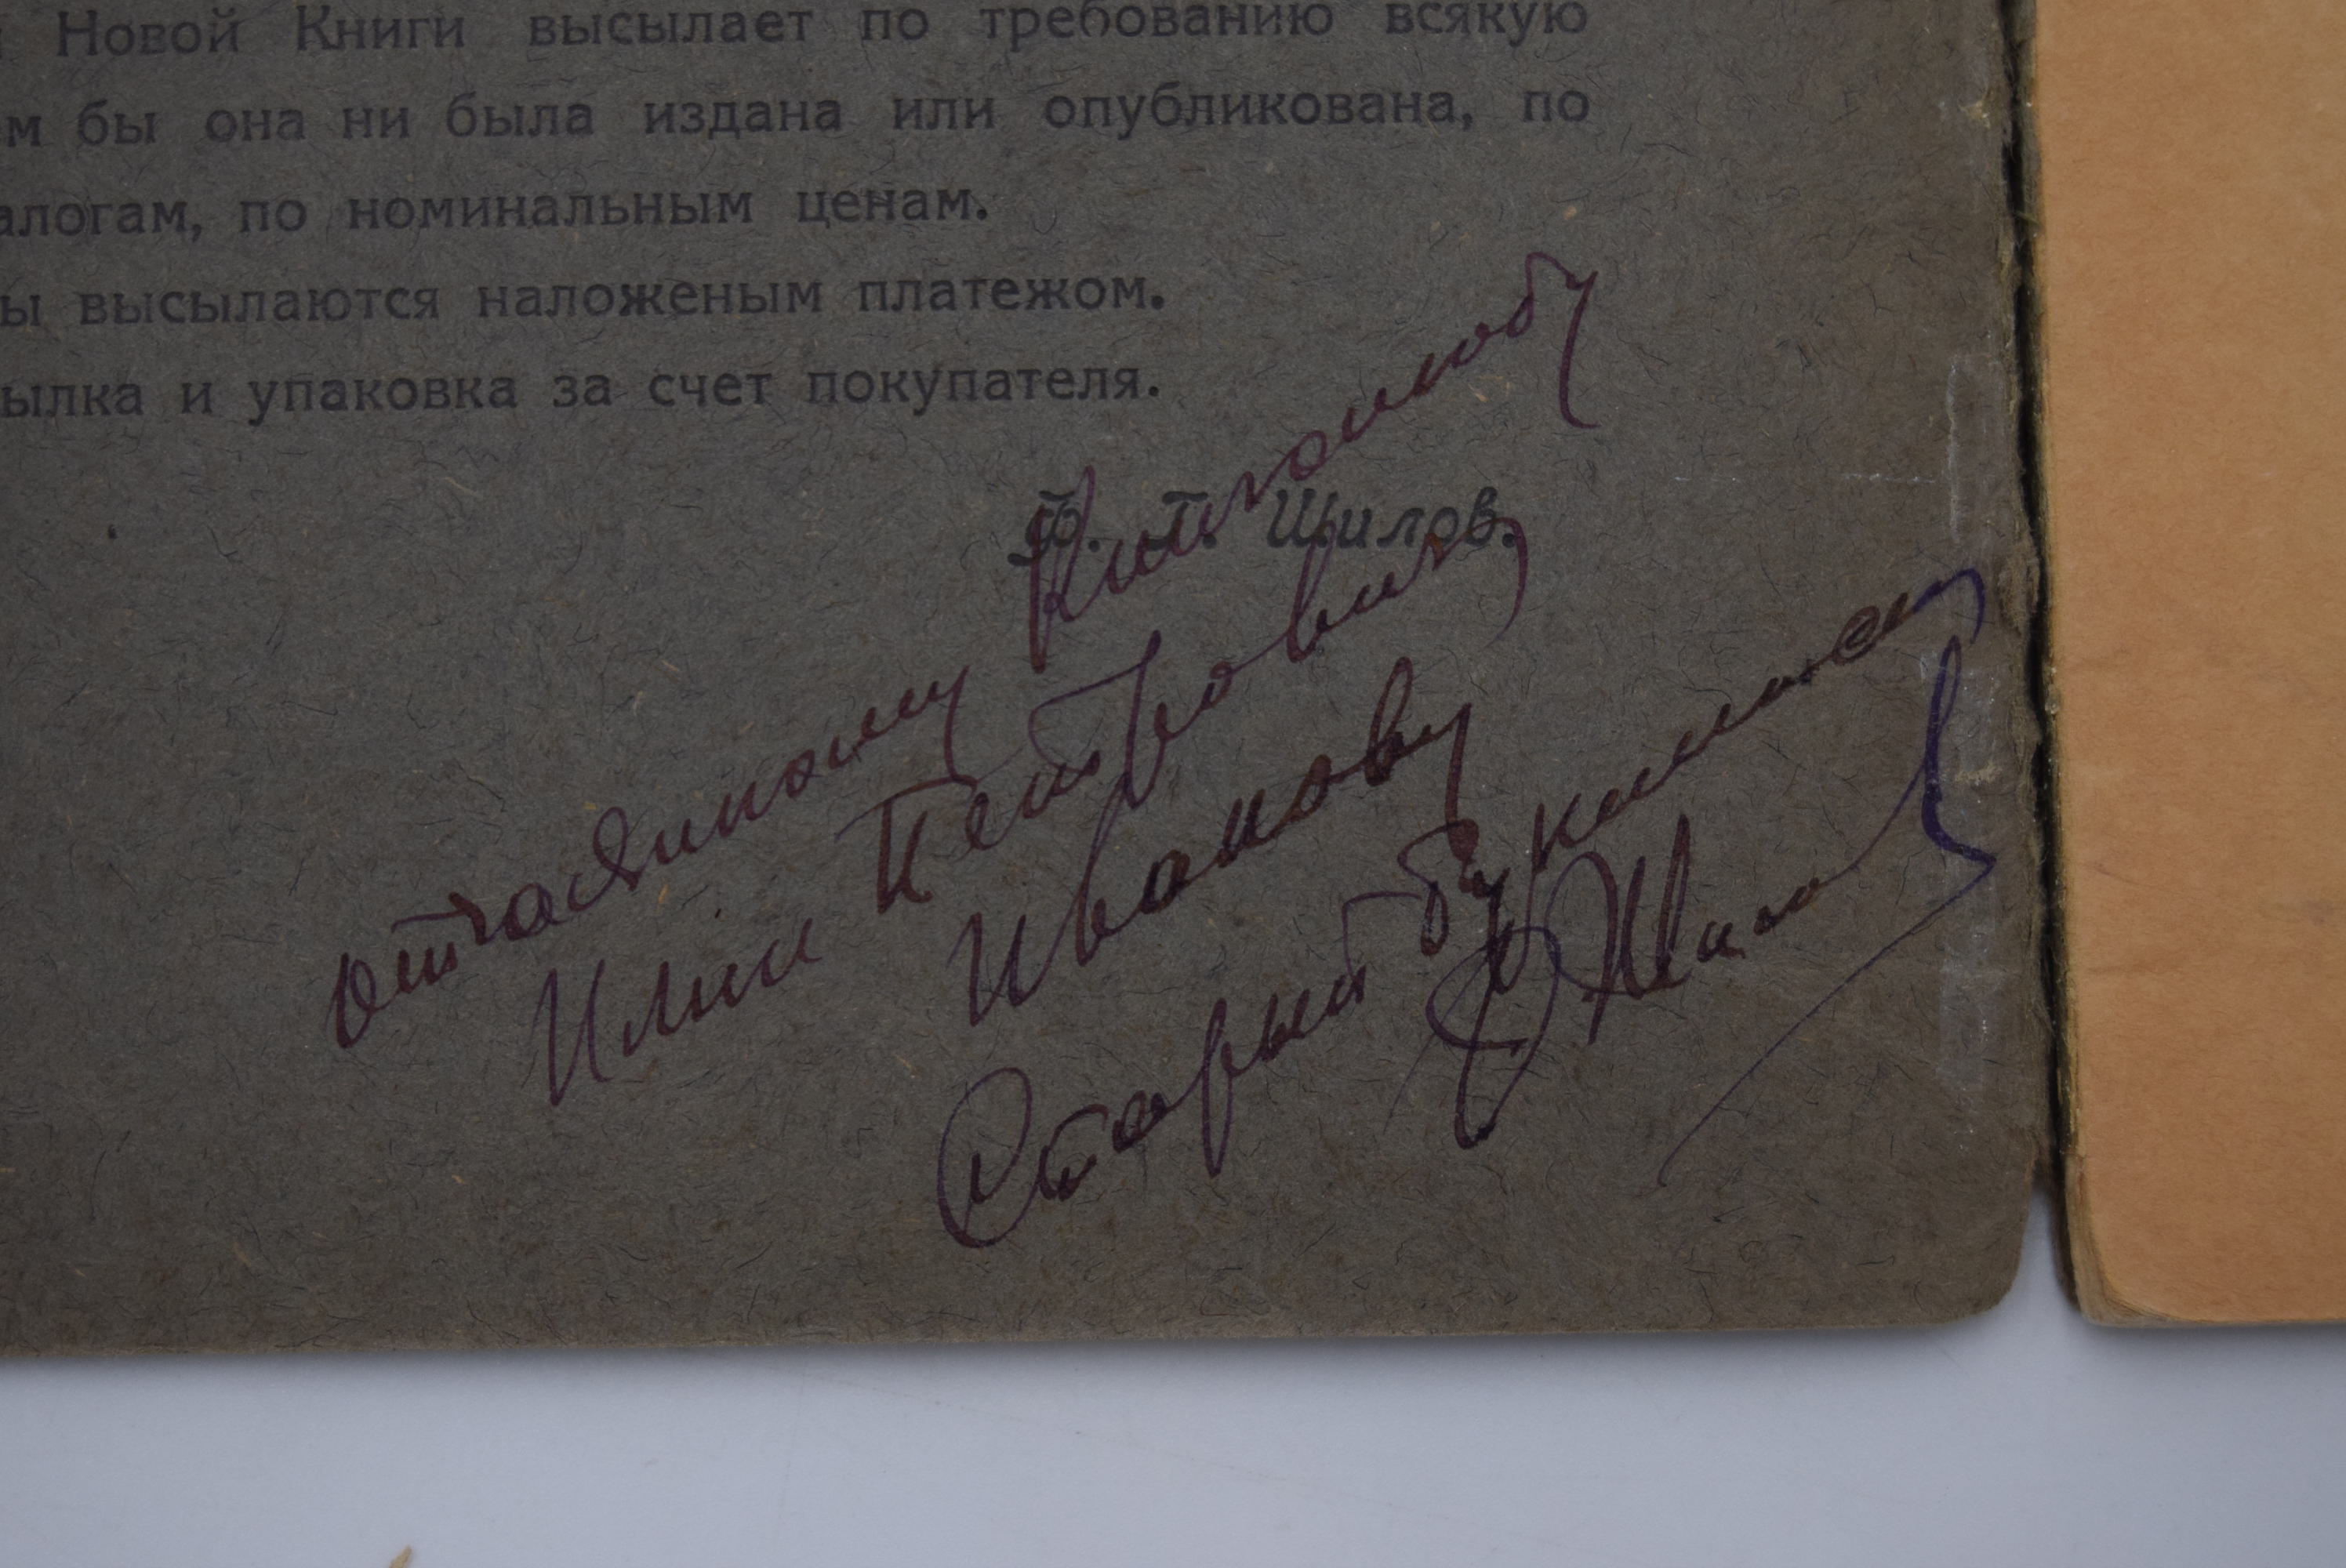 Новой Книги высылает по требованию всякую
м бы она ни была издана или опубликована, по
алогам, по номинальным ценам.
ы высылаются наложеным платежом.
ылка и упаковка за счет покупателя.
Ф. Г. Шилов.
отчаянному Книголюбу
Илии Петровичу
Иванову
Старый букинист
Ф Шилов